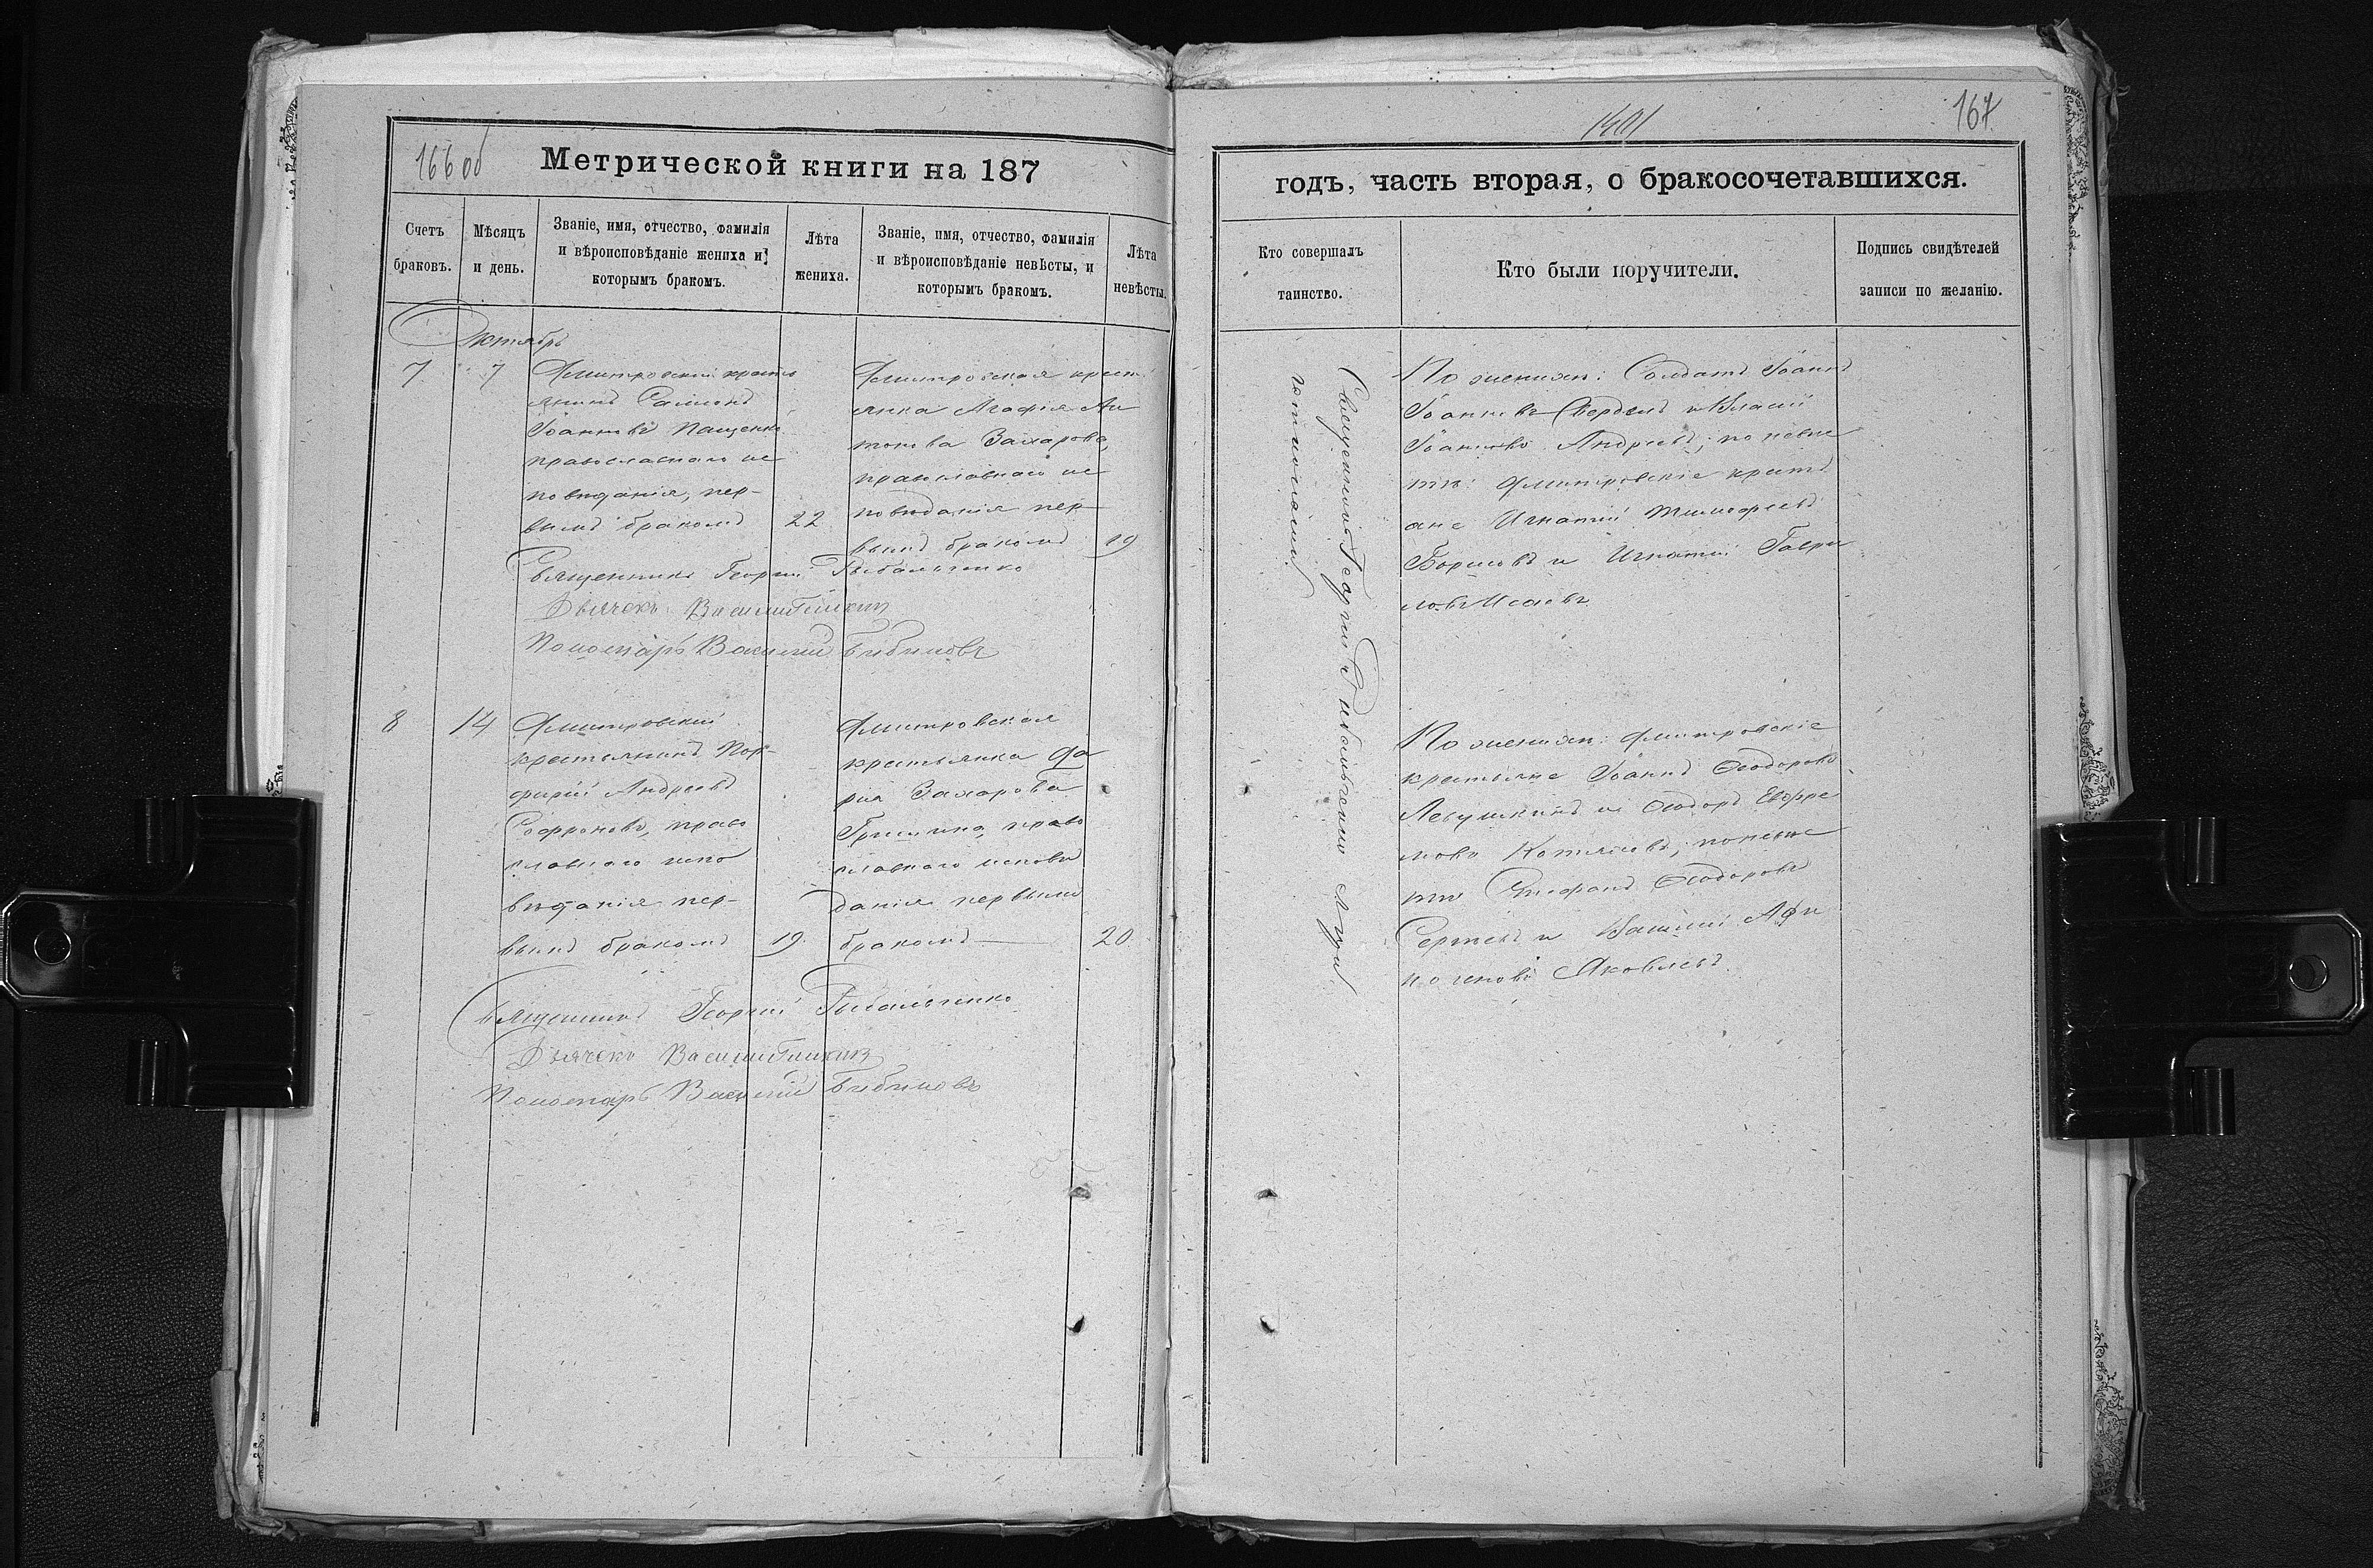 166 об
Метрической книги на 187
Счетъ браковъ.
Мѣсяцъ и день.
Званіе, имя, отчество, фамилія
и вѣроисповѣданіе жениха и
которымъ бракомъ.
Лѣта
жениха.
Званіе, имя, отчество, фамилія
и вѣроисповѣданіе невѣсты, и
которымъ бракомъ.
Лѣта
невѣсты.
Октябрь
7
7
Дмитровскій кресть
янинъ
Іоанновъ Пащенко
православнаго ис
повѣданія, пер-
вымъ бракомъ
22
Дмитровская крест
янка Агафія Ан
тонова Захарова,
православнаго ис
повѣданія пер-
вымъ бракомъ
19
Священникъ Георгій Рыбальченко
Дьячекъ Василій
Пономарь Василій Бибиковъ
8
14
Дмитровскій
крестьянинъ Пор-
фирій Андреевъ
Софроновъ, право
славнаго испо
вѣданія пер-
вымъ бракомъ
19.
Дмитровская
крестьянка Да
рія Захарова
Гришина, право
славнаго исповѣ
данія первымъ
бракомъ
20.
Священникъ Георгій Рыбальченко
Дьячекъ Василій
Пономарь Василій Бибиковъ
1401
167
годъ, часть вторая, о бракосочетавшихся.
Кто совершалъ
таинство.
Кто были поручители.
Подпись свидѣтелей
записи по желанію.
Священникъ Георгій Рыбальченко съ при
четомъ
По женихѣ: Солдатъ Іоаннъ
Іоанновъ и Власій
Іоанновъ Андреевъ; по невѣс
тѣ: Дмитровскіе кресть
яне Игнатій Тимофеевъ
Борисовъ и Игнатій Гаври
ловъ Исаевъ
По женихѣ: Дмитровскіе
крестьяне Іоаннъ Ѳеодоровъ
Левушкинъ и Ѳеодоръ Евфре
мовъ; по невѣс
тѣ Стефанъ Ѳеодоровъ
Сергѣевъ и Василій Афи
ногеновъ Яковлевъ.